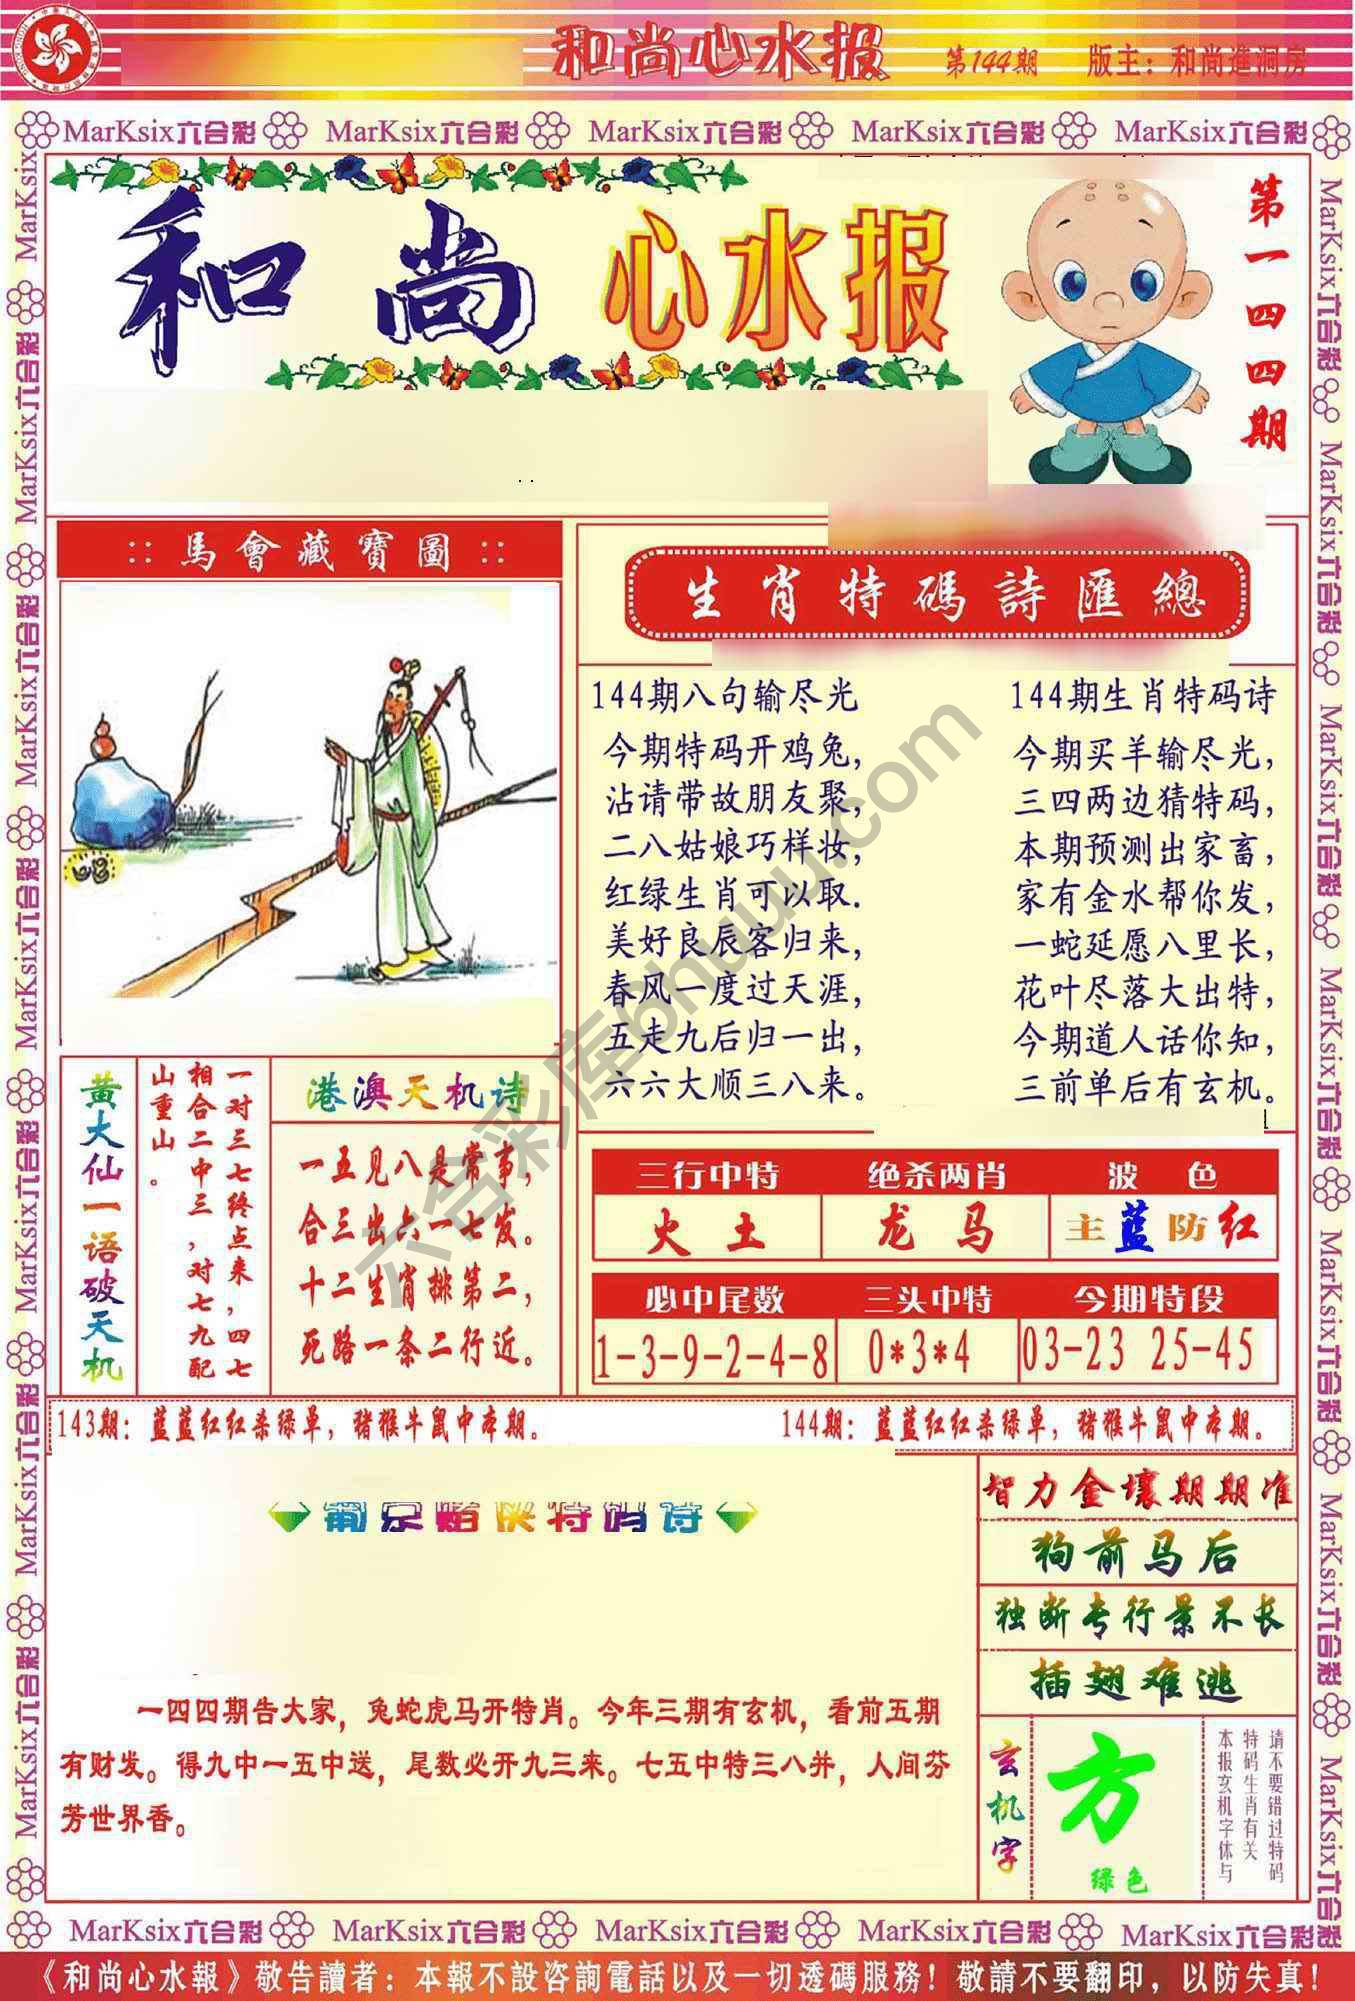 和尚心水报
第144期
版主：和尚進洞房
MarKsix六合彩 MarKsix六合彩 MarKsix六合彩 MarKsix六合彩 MarKsix六合彩
和尚 心水报
第一四四期
馬會藏寶圖
生肖特碼詩匯總
144期八句输尽光
今期特码开鸡兔，
沾请带故朋友聚，
二八姑娘巧样妆，
红绿生肖可以取．
美好良辰客归来，
春风一度过天涯，
五走九后归一出，
六六大顺三八来。
144期生肖特码诗
今期买羊输尽光，
三四两边猜特码，
本期预测出家畜，
家有金水帮你发，
一蛇延愿八里长，
花叶尽落大出特，
今期道人话你知，
三前单后有玄机。
黄大仙一语破天机
一对三七终点来，四七
相合二中三，对七九配
山重山。
港澳天机诗
一五见八是常事，
合三出六一七发。
十二生肖排第二，
死路一条二行近。
三行中特 绝杀两肖 波色
火土 龙马 主蓝防红
必中尾数 三头中特 今期特段
1-3-9-2-4-8 0*3*4 03-23 25-45
143期：蓝蓝红红杀绿单，猪猴牛鼠中本期。
144期：蓝蓝红红杀绿单，猪猴牛鼠中本期。
葡京赌侠特码诗
一四四期告大家，兔蛇虎马开特肖。今年三期有玄机，看前五期
有财发。得九中一五中送，尾数必开九三来。七五中特三八并，人间芬
芳世界香。
智力金壤期期准
狗前马后
独断专行景不长
插翅难逃
玄机字
方
绿色
请不要错过特码
特码生肖有关
本报玄机字体与
六合彩库6huuu.com
MarKsix六合彩 MarKsix六合彩 MarKsix六合彩 MarKsix六合彩 MarKsix六合彩
《和尚心水報》敬告讀者：本報不設咨詢電話以及一切透碼服務！敬請不要翻印，以防失真！